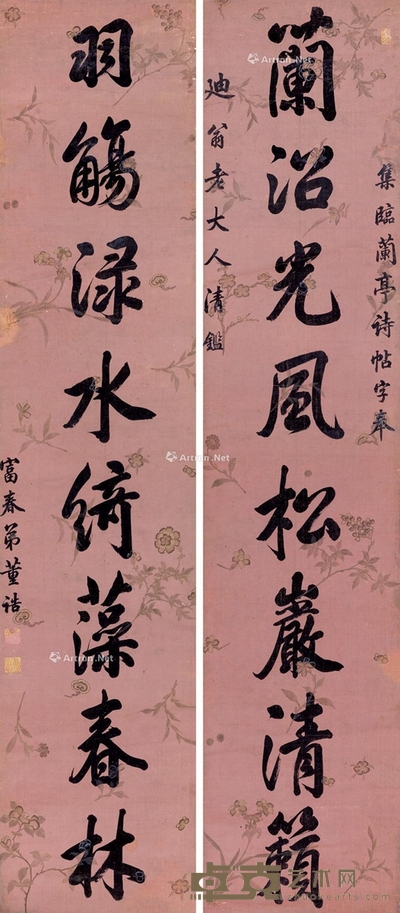 集臨蘭亭诗帖字奉
蘭沼光風松巖清籟
迪翁老大人清鑑
羽觴渌水綺藻春林
富春弟董诰
Artron.Net
Artron.Net
Artron.Net
Artron.Net